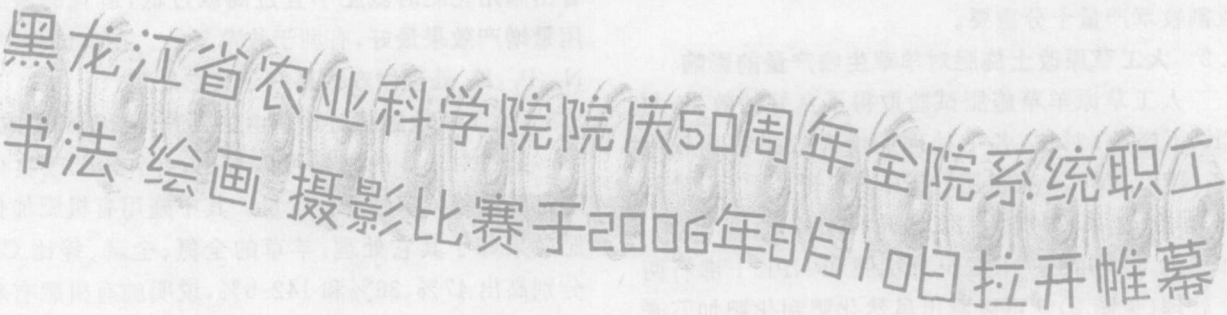 黑龙江省农业科学院院庆50周年全院系统职工
书法 绘画 摄影比赛于2006年8月10日拉开帷幕